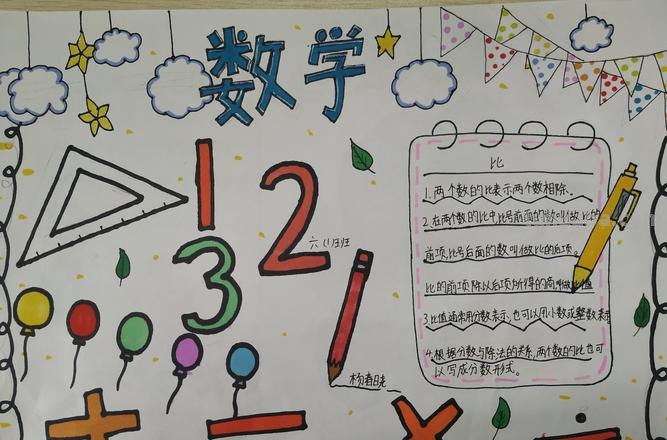 数学
1
2
3
六(1)班
比
1.两个数的比表示两个数相除.
2.在两个数的比中,比号前面的数叫做比的
前项,比号后面的数叫做比的后项。
比的前项除以后项所得的商,叫做比值
3.比值通常用分数表示,也可以用小数或整数表示
4.根据分数与除法的关系,两个数的比也可
以写成分数形式。
+ − × ÷